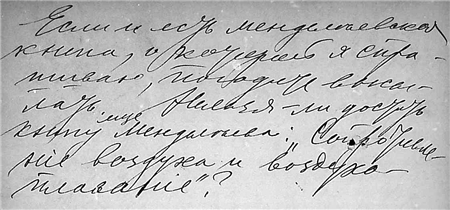 Если и есть менделѣевская
книга, о которой я спра-
шиваю, погодите высы-
лать. Нельзя-ли достать
еще
книгу Менделѣева: „Сопротивле-
ніе воздуха и воздухо-
плаваніе"?